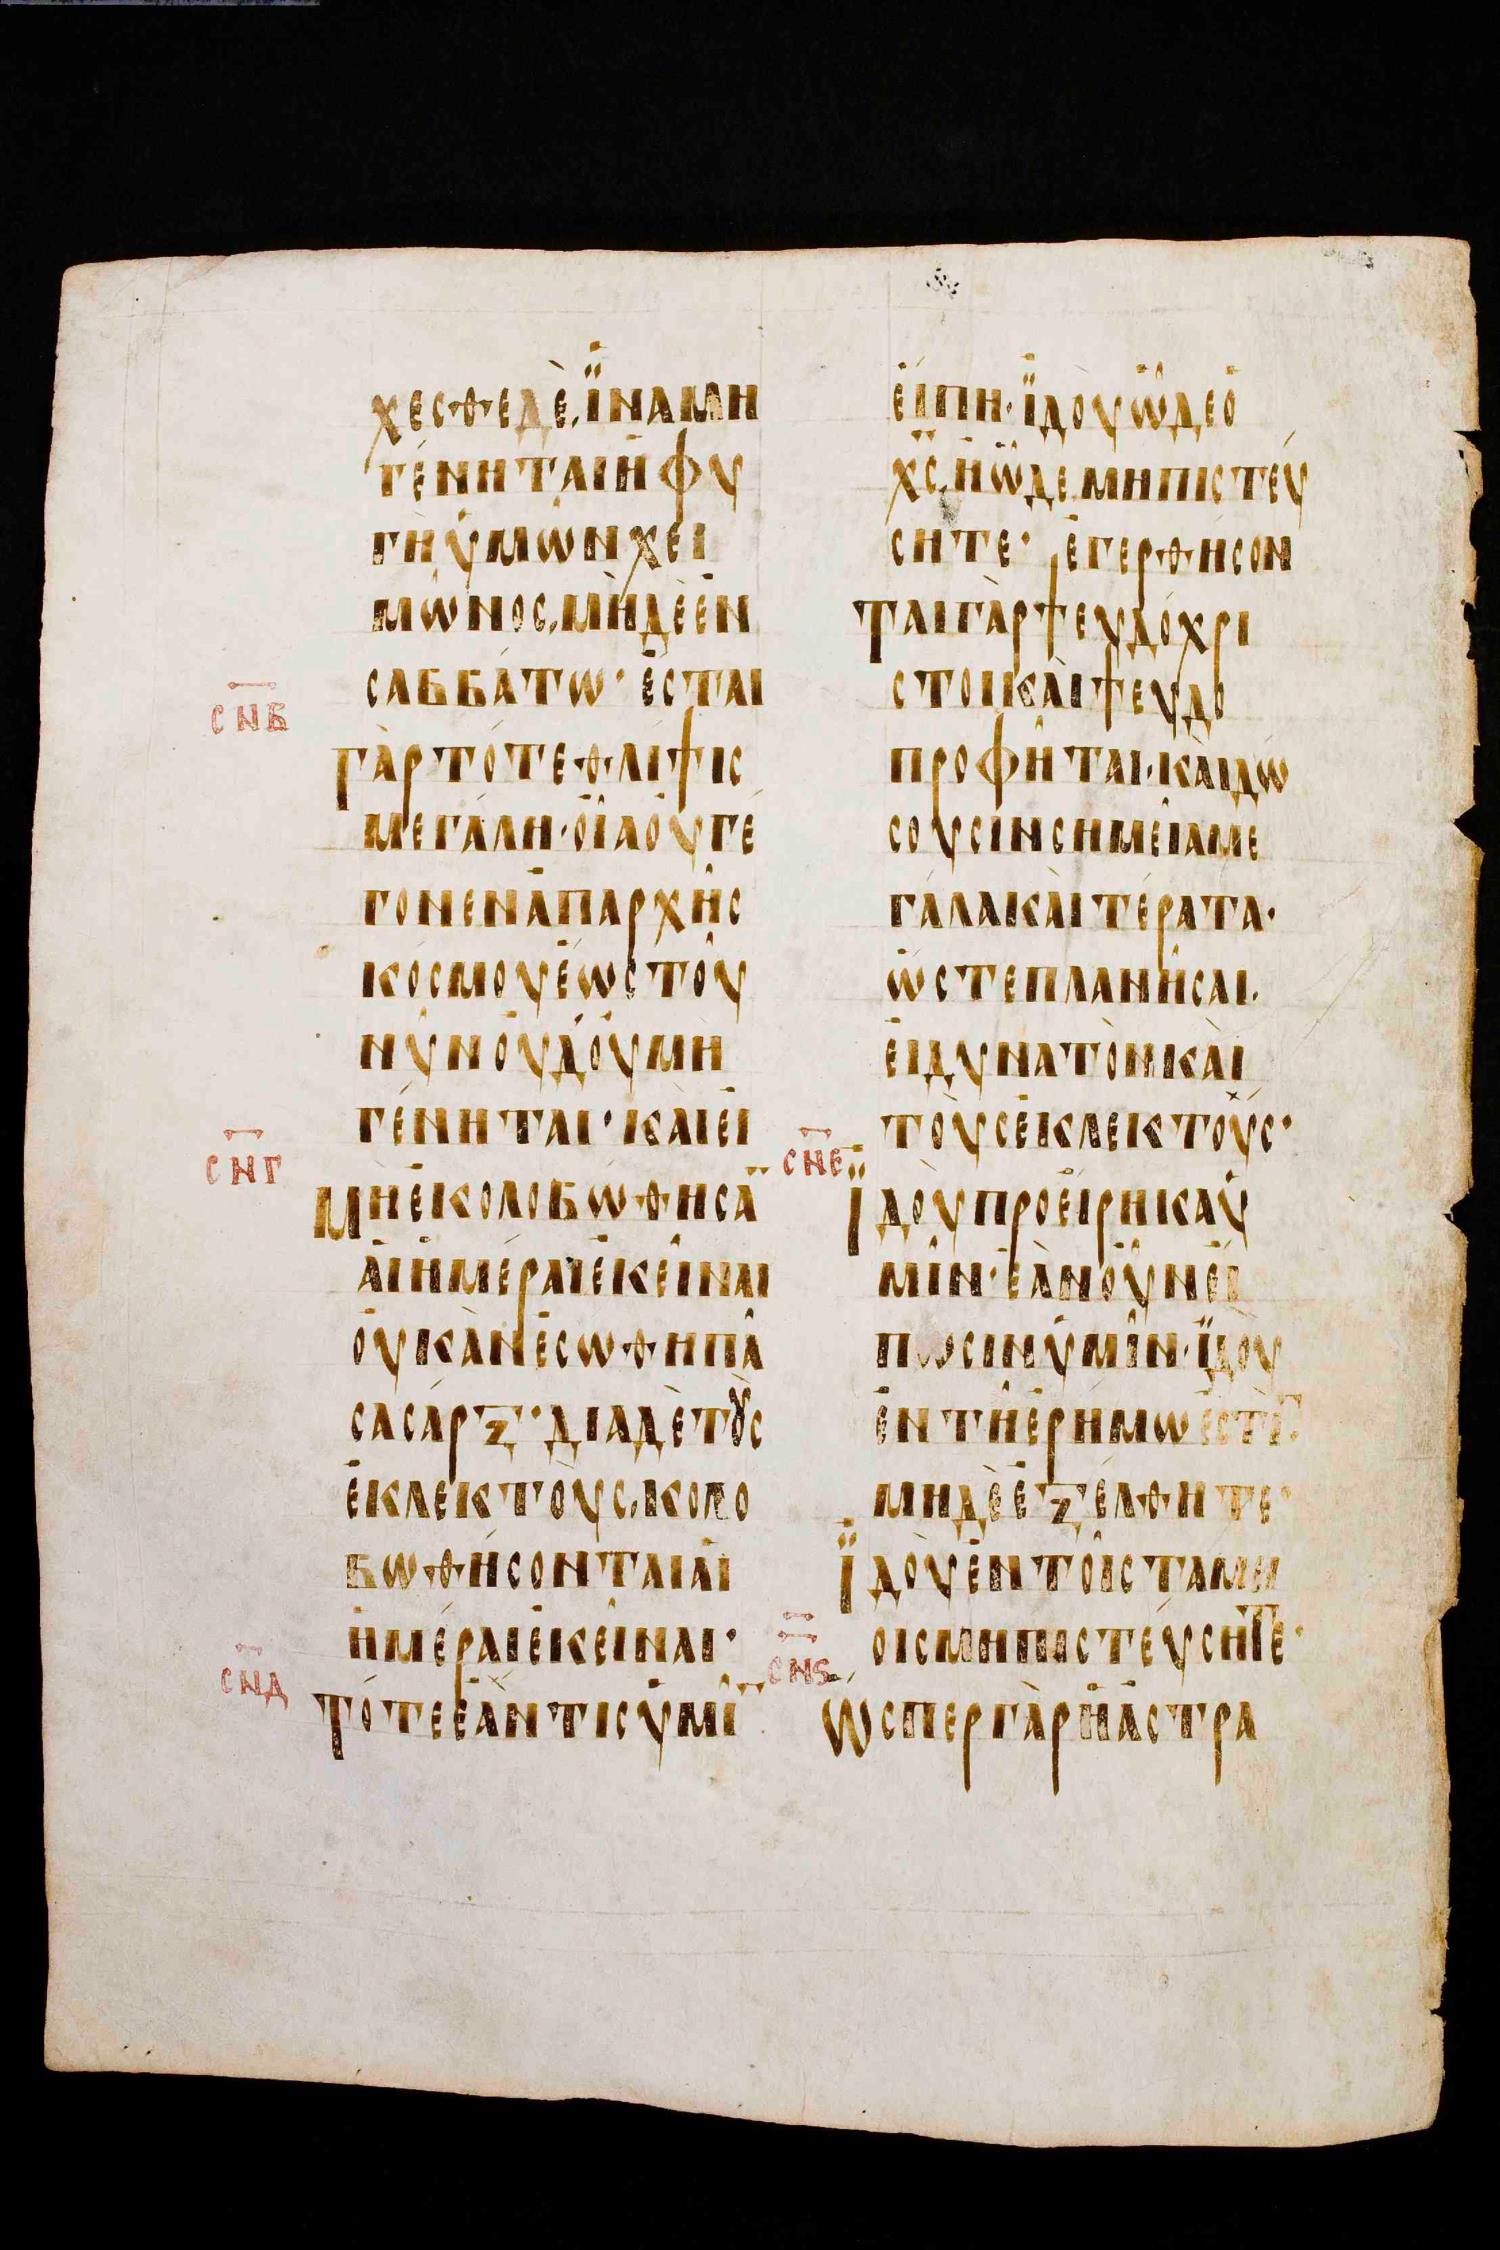 χεσθεδὲ, ἵναμὴ
γένηταιἡφυ
γὴὑμῶνχει
μῶνος, μὴδὲἐν
σαββάτω· ἔσται
σνβ
γὰρτότεθλίψις
μεγάλη· οἵαοὐγέ
γονενἀπαρχῆς
κόσμουἕωςτοῦ
νῦνοὐδοὐμὴ
γένηται· καὶεἰ
σνγ
μὴἐκολοβώθησᾱ
αἱἡμέραιἐκεῖναι
οὐκἂνἐσώθηπᾶ
σασάρξ· διαδὲτοὺς
ἐκλεκτοὺς, κολο
βωθήσονταιαἱ
ἡμέραιἐκεῖναι·
σνδ
τότεἐάντιςὑμῖ̄
εἴπη· ἰδοὺὧδεὁ
χς̄, ἢὧδεμὴπιστεύ
σητε· ἐγερθήσον
ταιγὰρψευδόχρι
στοικαὶψευδο
προφῆται· καὶδώ
σουσινσημεῖαμε
γάλακαὶτέρατα·
ὥστεπλανῆσαι.
εἰδυνατὸνκαὶ
τοὺςἐκλεκτούς·
σνε
ἰδοὺπροείρηκαὑ
μῖν· ἐὰνοὖνεἴ
πωσινὑμῖν· ἰδοὺ
ἐντῆἐρήμωἐστῑ·
μὴδὲἐξέλθητε·
ἰδοὺἐντοῖςταμεί
οιςμὴπιστεύσητε·
σνς
ὥσπεργὰρἡἀστρα